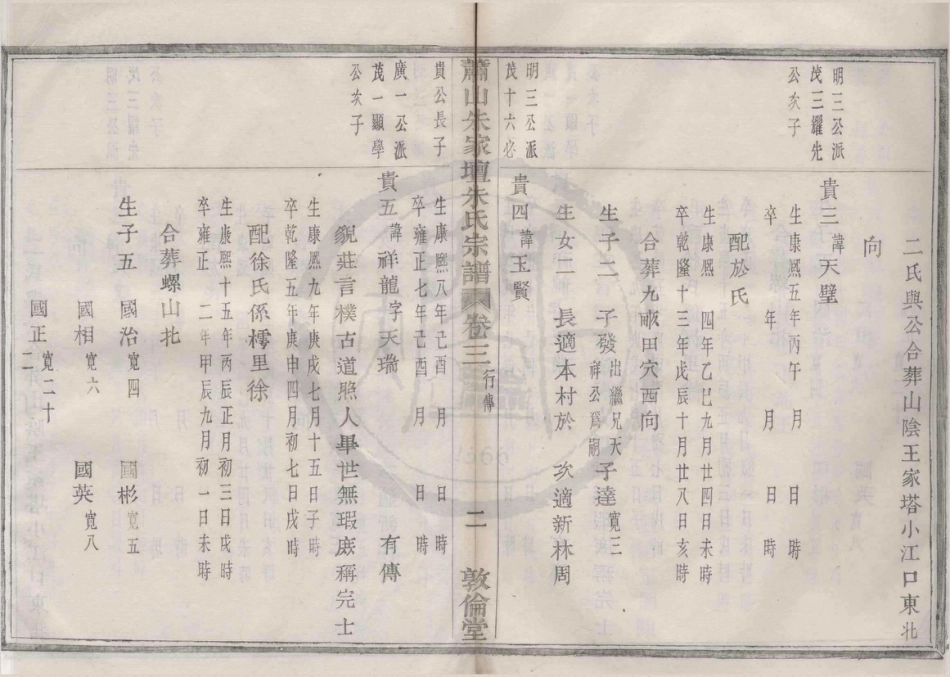 二氏與公合葬山陰王家塔小江口東北
向
明三公派
茂三耀先
公次子
貴三諱天壁
生康熙五年丙午 月 日 時
卒 年 月 日 時
配於氏
生康熙 四年乙巳九月廿四日未時
卒乾隆十三年戊辰十月廿八日亥時
合葬九畝田穴西向
生子二 子發出繼兄天祥公爲嗣 子達寬三
生女二 長適本村於 次適新林周
明三公派
茂十六必
貴四諱玉賢
蕭山朱家壇朱氏宗譜 卷三 行傳 二 敦倫堂
生康熙八年己酉 月 日 時
卒雍正七年己酉 月 日 時
貴公長子
廣一公派
茂一顯學
公次子
貴五諱祥龍字天瑞 有傳
貌莊言樸古道照人畢世無瑕庶稱完士
生康熙九年庚戌七月十五日子時
卒乾隆五年庚申四月初七日戌時
配徐氏係樗里徐
生康熙十五年丙辰正月初三日戌時
卒雍正 二年甲辰九月初一日未時
合葬螺山北
生子五 國治寬四 國彬寬五
國相寬六 國英寬八
國正寬二十
二